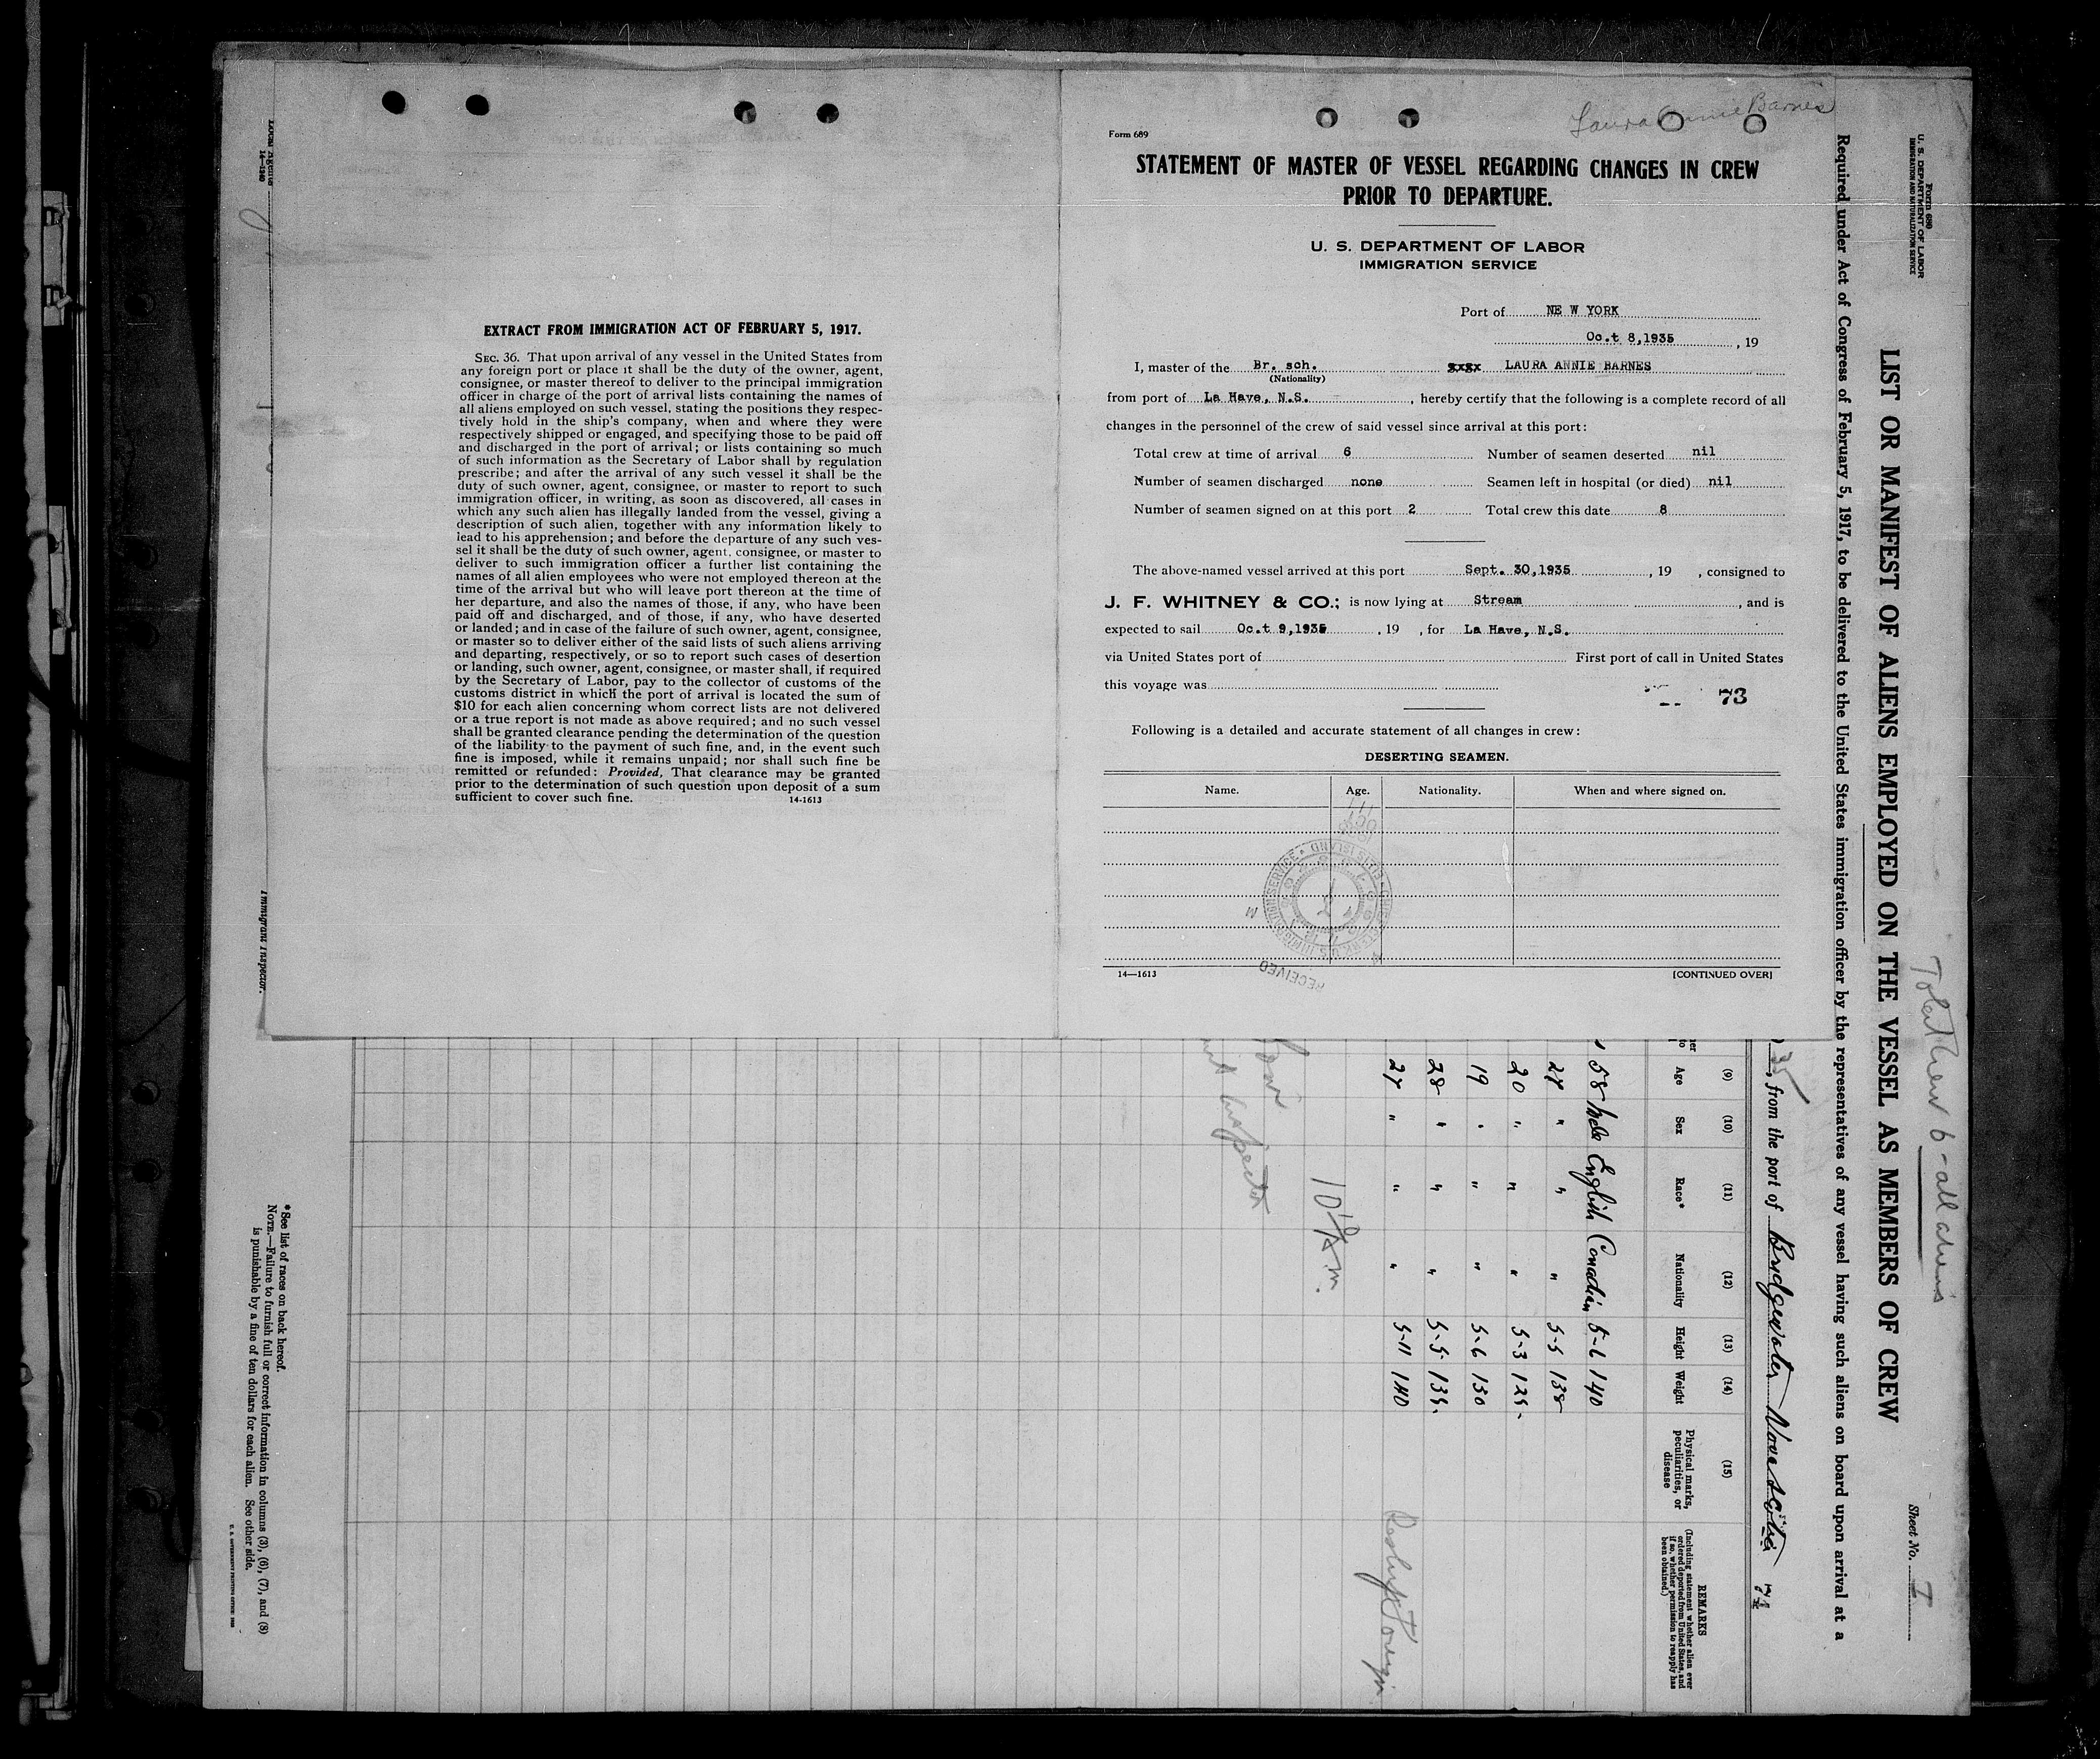 Laura Annie Barnes
Form 689
STATEMENT OF MASTER OF VESSEL REGARDING CHANGES IN CREW
PRIOR TO DEPARTURE.
U. S. DEPARTMENT OF LABOR
IMMIGRATION SERVICE
Port of NE W YORK
Oc.t 8,1935, 19
I, master of the Br. sch. xxxx LAURA ANNIE BARNES
(Nationality)
from port of La Have, N.S., hereby certify that the following is a complete record of all
changes in the personnel of the crew of said vessel since arrival at this port:
Total crew at time of arrival 6 Number of seamen deserted nil
Number of seamen discharged none Seamen left in hospital (or died) nil
Number of seamen signed on at this port 2 Total crew this date 8
The above-named vessel arrived at this port Sept. 30,1935, 19 , consigned to
J. F. WHITNEY & CO.; is now lying at Stream, and is
expected to sail Oc.t 9,1935, 19 , for La Have, N.S.
via United States port of First port of call in United States
this voyage was
73
Following is a detailed and accurate statement of all changes in crew:
DESERTING SEAMEN.
Name. Age. Nationality. When and where signed on.
RECEIVED
14—1613 [CONTINUED OVER]
EXTRACT FROM IMMIGRATION ACT OF FEBRUARY 5, 1917.
SEC. 36. That upon arrival of any vessel in the United States from
any foreign port or place it shall be the duty of the owner, agent,
consignee, or master thereof to deliver to the principal immigration
officer in charge of the port of arrival lists containing the names of
all aliens employed on such vessel, stating the positions they respec-
tively hold in the ship's company, when and where they were
respectively shipped or engaged, and specifying those to be paid off
and discharged in the port of arrival; or lists containing so much
of such information as the Secretary of Labor shall by regulation
prescribe; and after the arrival of any such vessel it shall be the
duty of such owner, agent, consignee, or master to report to such
immigration officer, in writing, as soon as discovered, all cases in
which any such alien has illegally landed from the vessel, giving a
description of such alien, together with any information likely to
lead to his apprehension; and before the departure of any such ves-
sel it shall be the duty of such owner, agent, consignee, or master to
deliver to such immigration officer a further list containing the
names of all alien employees who were not employed thereon at the
time of the arrival but who will leave port thereon at the time of
her departure, and also the names of those, if any, who have been
paid off and discharged, and of those, if any, who have deserted
or landed; and in case of the failure of such owner, agent, consignee,
or master so to deliver either of the said lists of such aliens arriving
and departing, respectively, or so to report such cases of desertion
or landing, such owner, agent, consignee, or master shall, if required
by the Secretary of Labor, pay to the collector of customs of the
customs district in which the port of arrival is located the sum of
$10 for each alien concerning whom correct lists are not delivered
or a true report is not made as above required; and no such vessel
shall be granted clearance pending the determination of the question
of the liability to the payment of such fine, and, in the event such
fine is imposed, while it remains unpaid; nor shall such fine be
remitted or refunded: Provided, That clearance may be granted
prior to the determination of such question upon deposit of a sum
sufficient to cover such fine. 14-1613
Form 680
U. S. DEPARTMENT OF LABOR
IMMIGRATION AND NATURALIZATION SERVICE
Total Crew 6 - all aliens
Sheet No. 1
LIST OR MANIFEST OF ALIENS EMPLOYED ON THE VESSEL AS MEMBERS OF CREW
Required under Act of Congress of February 5, 1917, to be delivered to the United States immigration officer by the representatives of any vessel having such aliens on board upon arrival at a
35, from the port of Bridgewater Nova Scotia
(9) (10) (11) (12) (13) (14) (15)
Age Sex Race* Nationality Height Weight Physical marks, peculiarities, or disease
REMARKS
(Including statement whether alien ever ordered deported from United States, and if so, whether permission to reapply has been obtained.)
58 Male English Canadian 5-6 140
27 " " " 5-5 138
20 " " " 5-3 125
19 " " " 5-6 130
28 " " " 5-5 135
27 " " " 5-11 140
Reship Foreign
10 A.m.
Inspector
Immigrant Inspector.
14—1240
* See list of races on back hereof.
NOTE.—Failure to furnish full or correct information in columns (3), (6), (7), and (8)
is punishable by a fine of ten dollars for each alien. See other side.